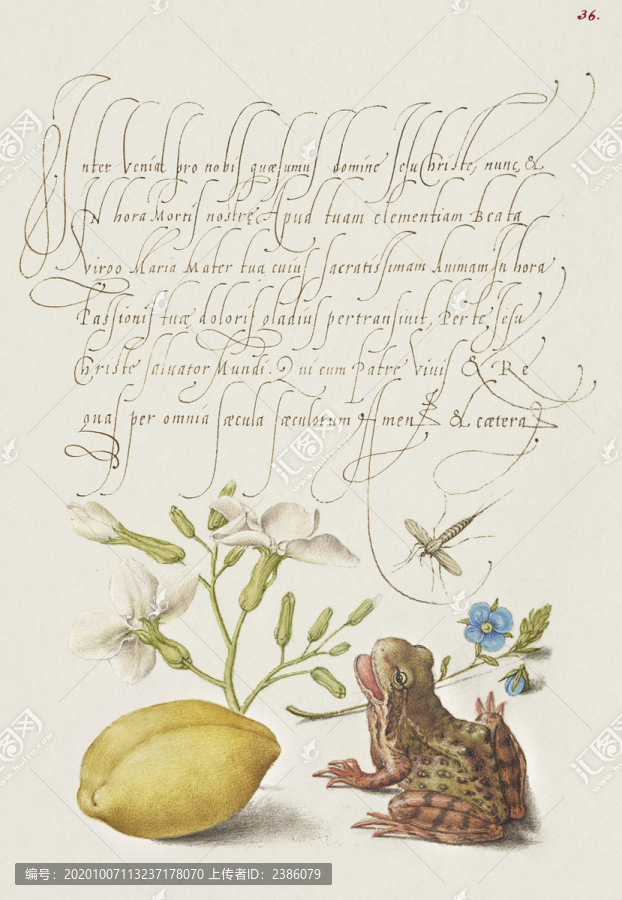 36.
Inter veniat pro nobis quæsumus domine Jesu Christe, nunc &
In hora Mortis nostrę Apud tuam clementiam Beata
Virgo Maria Mater tua cuius sacratissimam Animam In hora
Passionis tuæ doloris gladius pertransivit, Per te, Jesu
Christe salvator Mundi. Qui cum Patre vivis & Re
gnas per omnia sæcula sæculorum Amen & cætera
编号: 20201007113237178070 上传者ID: 2386079